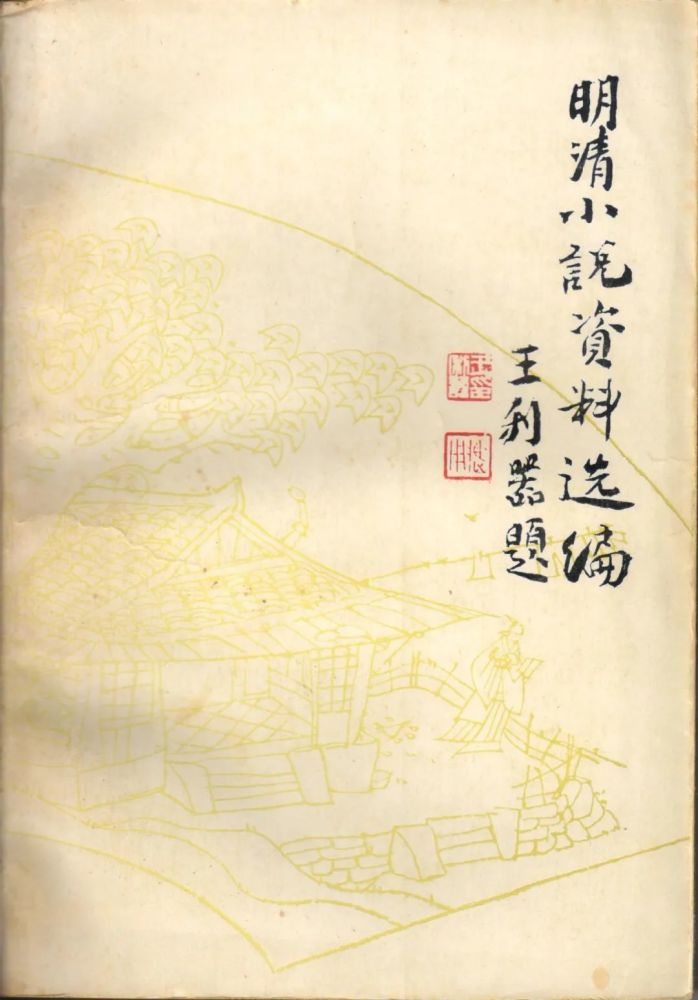 明清小說資料选编
王利器題